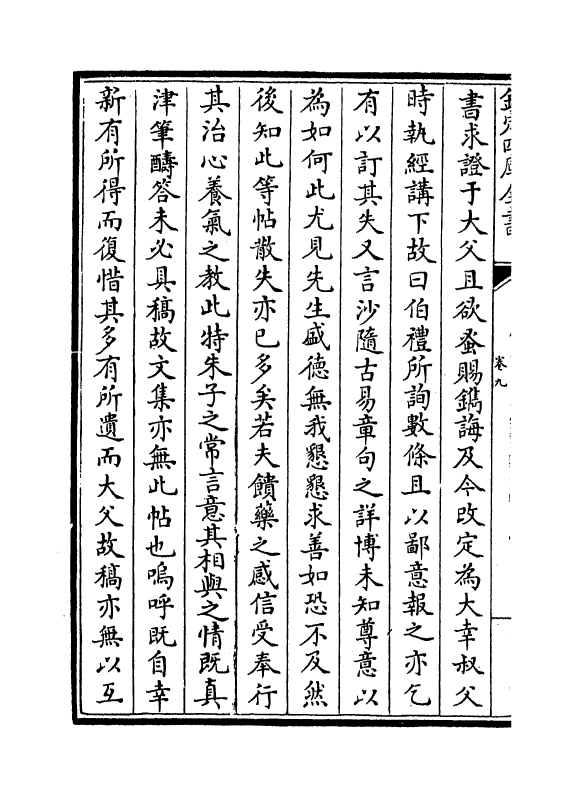 欽定四庫全書
卷九
書求證于大父且欲蚤賜鐫誨及今改定為大幸叔父
時執經講下故曰伯禮所詢數條且以鄙意報之亦乞
有以訂其失又言沙隨古易章句之詳博未知尊意以
為如何此尤見先生盛德無我懇懇求善如恐不及然
後知此等帖散失亦已多矣若夫饋藥之感信受奉行
其治心養氣之教此特朱子之常言意其相與之情既真
津筆醻答未必具稿故文集亦無此帖也嗚呼既自幸
新有所得而復惜其多有所遺而大父故稿亦無以互